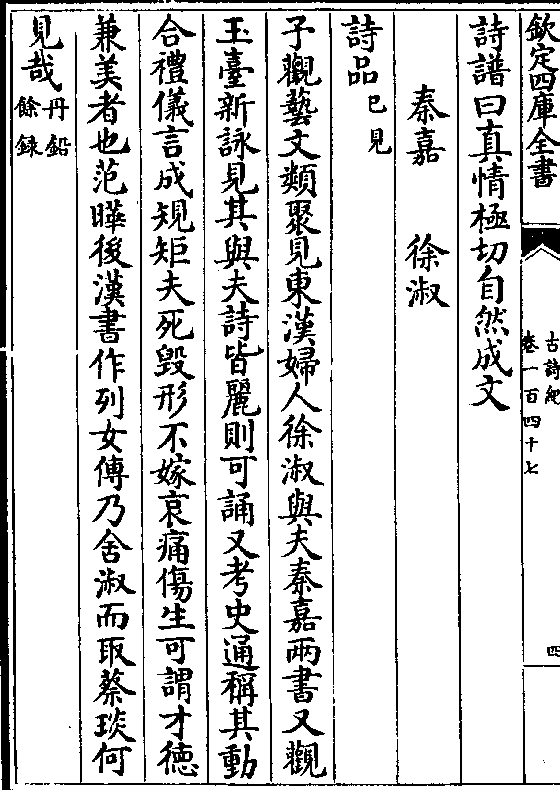 欽定四庫全書
古詩紀
卷一百四十七
四
詩譜曰真情極切自然成文
秦嘉 徐淑
詩品已見
予觀藝文類聚見東漢婦人徐淑與夫秦嘉兩書又觀
玉臺新詠見其與夫詩皆麗則可誦又考史通稱其動
合禮儀言成規矩夫死毀形不嫁哀痛傷生可謂才徳
兼美者也范曄後漢書作列女傳乃舍淑而取蔡琰何
見哉丹鉛
餘録